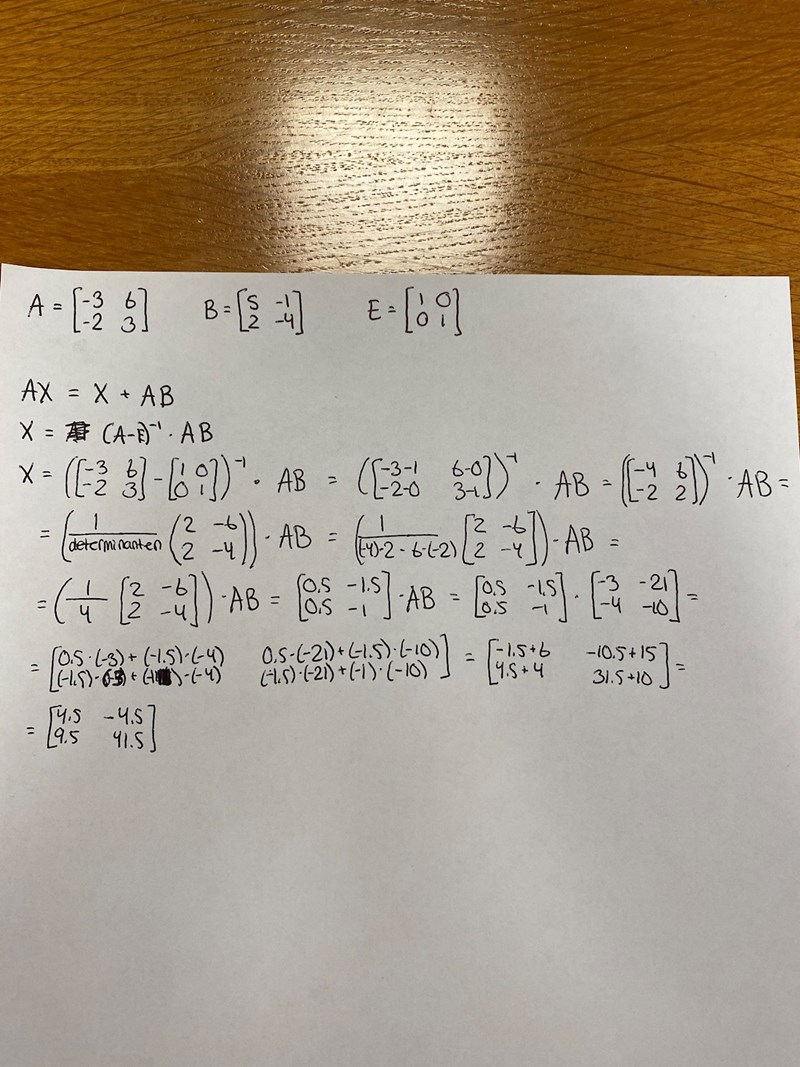 A = [-3 6; -2 3] B = [5 -1; 2 -4] E = [1 0; 0 1]
AX = X + AB
X = (A-E)⁻¹ · AB
X = ([-3 6; -2 3] - [1 0; 0 1])⁻¹ · AB = ([-3-1 6-0; -2-0 3-1])⁻¹ · AB = ([-4 6; -2 2])⁻¹ · AB =
= (1/determinanten (2 -6; 2 -4)) · AB = (1/((-4)·2 - 6·(-2)) [2 -6; 2 -4]) · AB =
= (1/4 [2 -6; 2 -4]) · AB = [0.5 -1.5; 0.5 -1] · AB = [0.5 -1.5; 0.5 -1] · [-3 -21; -4 -10] =
= [0.5·(-3) + (-1.5)·(-4) 0.5·(-21) + (-1.5)·(-10); (-1.5)·(-3) + (-1)·(-4) (-1.5)·(-21) + (-1)·(-10)] = [-1.5+6 -10.5+15; 4.5+4 31.5+10] =
= [4.5 -4.5; 9.5 41.5]